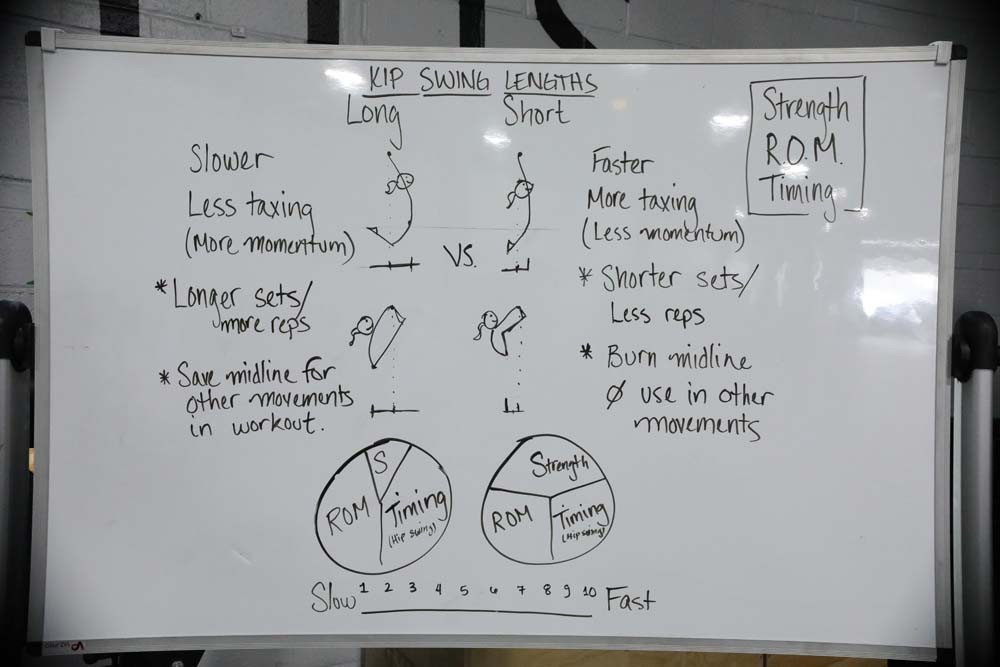 KIP SWING LENGTHS
Long
Short
Strength
R.O.M.
Timing
Slower
Less taxing
(More momentum)
* Longer sets/
more reps
* Save midline for
other movements
in workout.
VS.
Faster
More taxing
(Less momentum)
* Shorter sets/
Less reps
* Burn midline
Ø use in other
movements
S
ROM
Timing
(Hip swing)
Strength
ROM
Timing
(Hip swing)
Slow 1 2 3 4 5 6 7 8 9 10 Fast